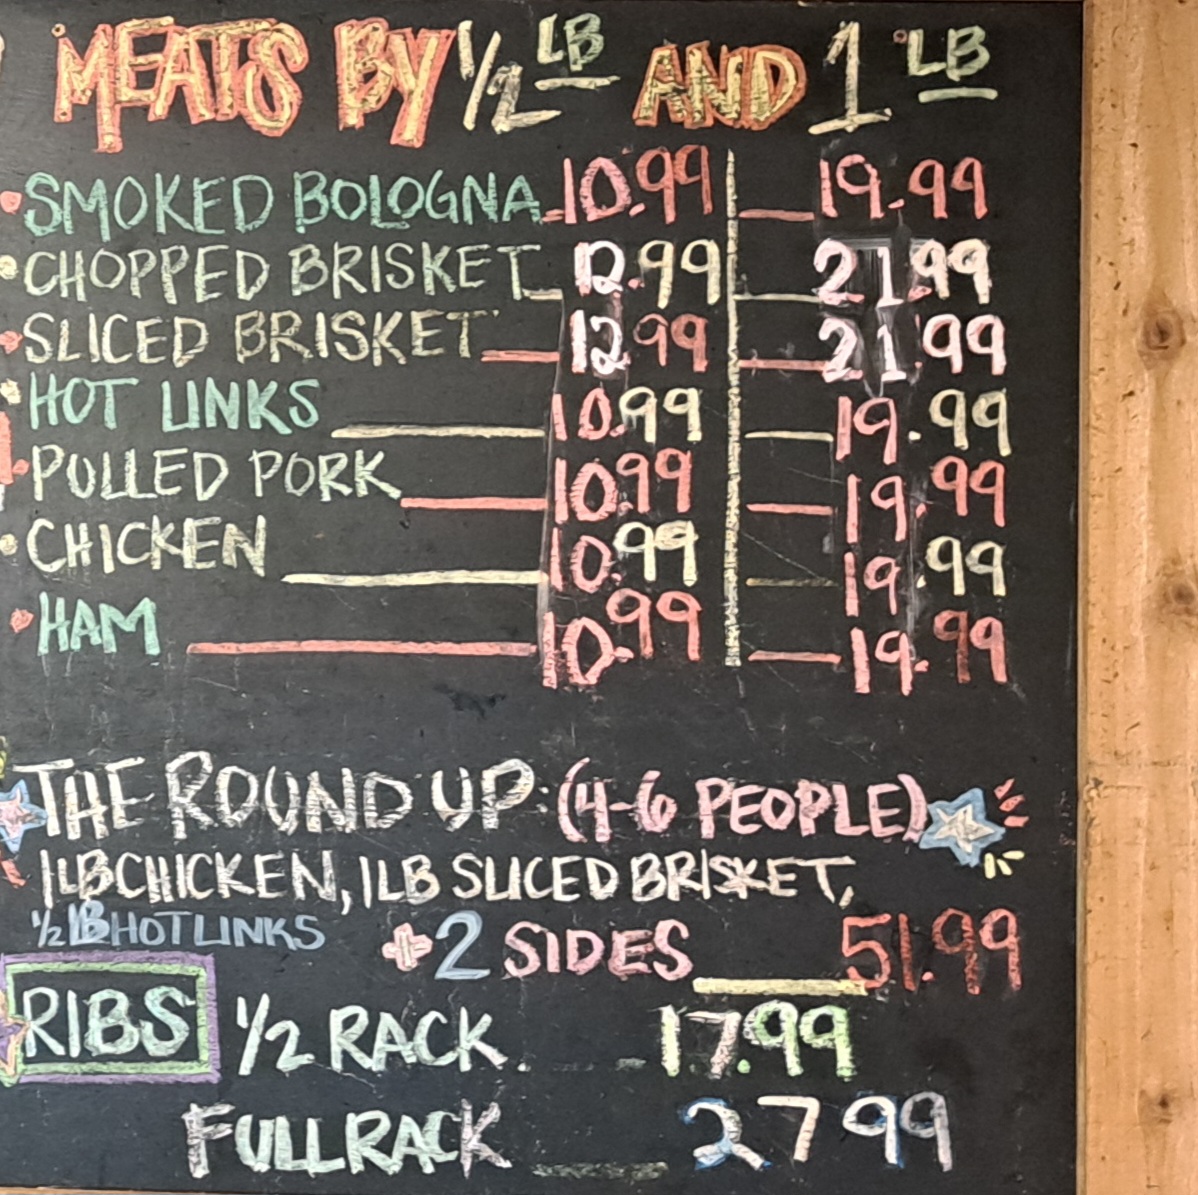 MEATS BY 1/2 LB AND 1 LB
SMOKED BOLOGNA 10.99 19.99
CHOPPED BRISKET 12.99 21.99
SLICED BRISKET 12.99 21.99
HOT LINKS 10.99 19.99
PULLED PORK 10.99 19.99
CHICKEN 10.99 19.99
HAM 10.99 19.99
THE ROUND UP: (4-6 PEOPLE)
1LB CHICKEN, 1LB SLICED BRISKET,
1/2 LB HOT LINKS + 2 SIDES 51.99
RIBS 1/2 RACK 17.99
FULL RACK 27 99